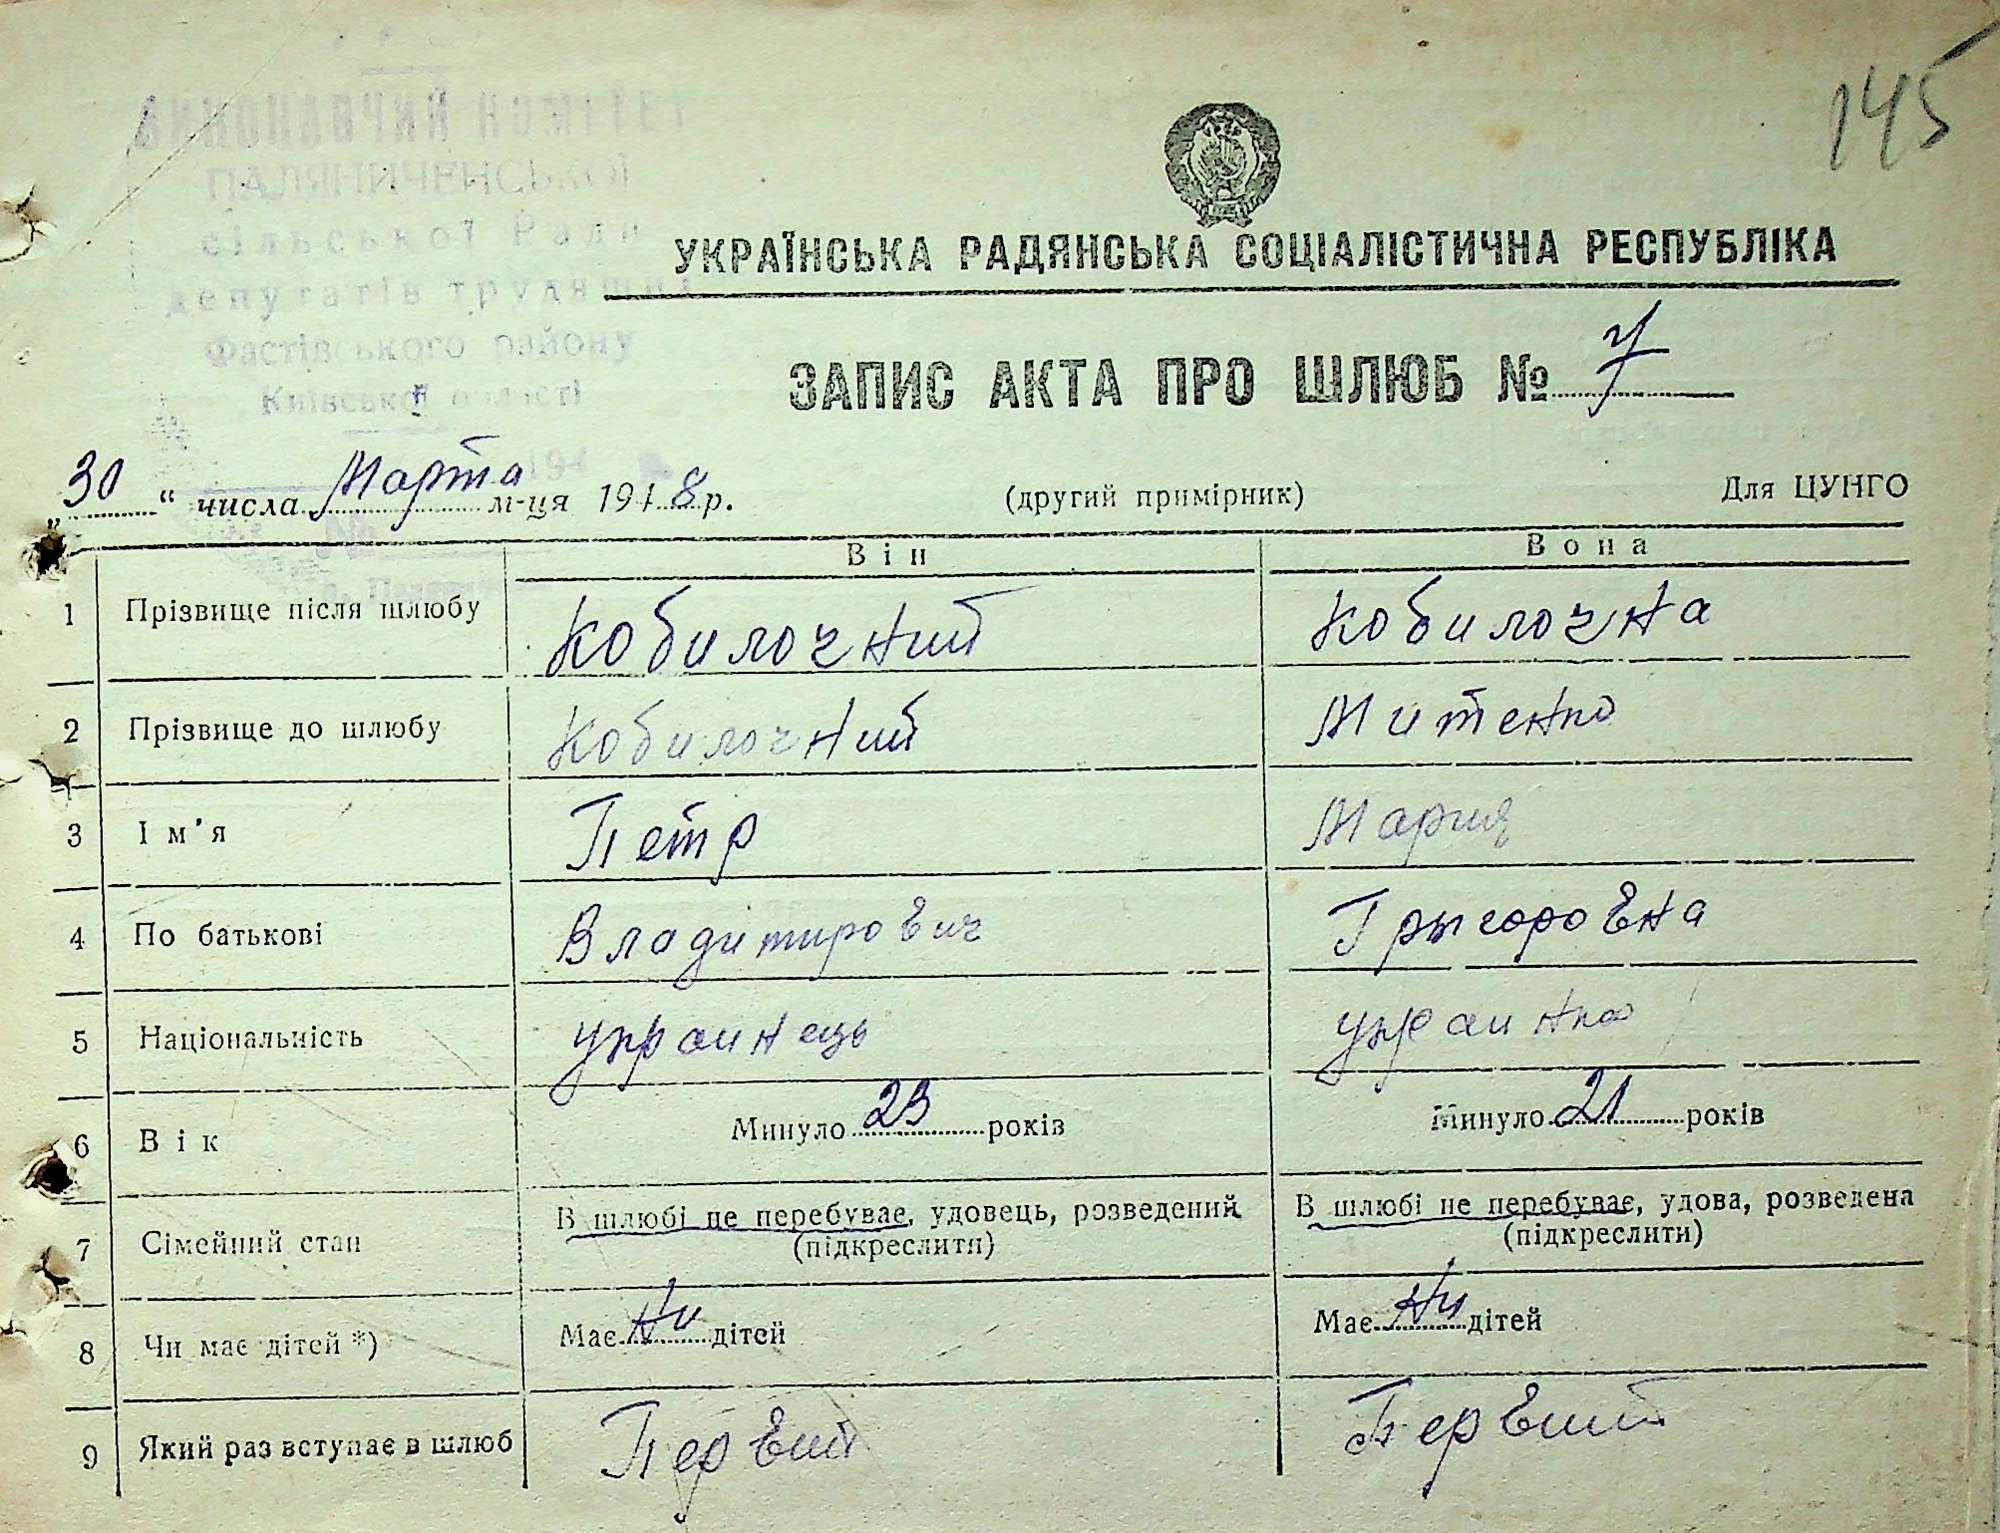 145
ВИКОНАВЧИЙ КОМІТЕТ
ПАЛЯНИЧЕНСЬКОЇ
сільської Ради
депутатів трудящих
Фастівського району
Київської області
194
УКРАЇНСЬКА РАДЯНСЬКА СОЦІАЛІСТИЧНА РЕСПУБЛІКА
ЗАПИС АКТА ПРО ШЛЮБ № 7
„30“ числа Марта м-ця 1948 р. (другий примірник) Для ЦУНГО
Він Вона
1 Прізвище після шлюбу Кобилочний Кобилочна
2 Прізвище до шлюбу Кобилочний Митенко
3 Ім'я Петр Мария
4 По батькові Владимирович Грыгоровна
5 Національність украинець украинка
6 Вік Минуло 23 років Минуло 21 років
7 Сімейний стан В шлюбі не перебуває, удовець, розведений (підкреслити) В шлюбі не перебуває, удова, розведена (підкреслити)
8 Чи має дітей *) Має ни дітей Має ни дітей
9 Який раз вступає в шлюб Первий Первий